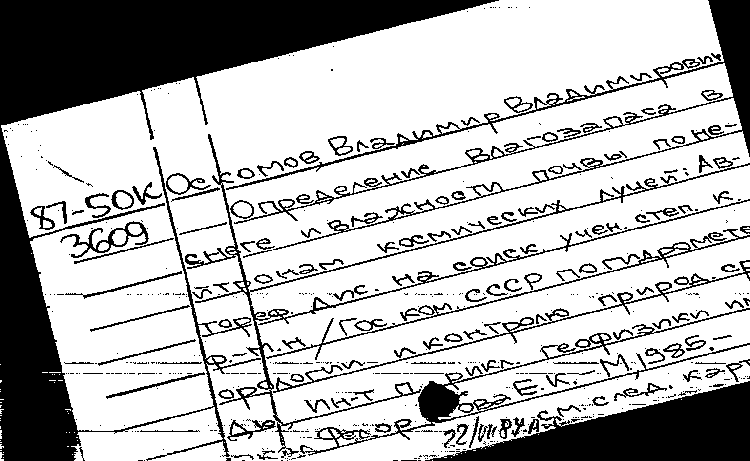 87-50К Оскомов, Владимир Владимирович
3609 Определение влагозапаса в
снеге и влажности почвы по не-
йтронам космических лучей: Ав-
тореф. дис. на соиск. учен. степ. к.
ф.-м.н. / Гос. ком. СССР по гидромете
орологии и контролю природ. ср
ды, Ин-т прикл. геофизики
Е.К. - М, 1986. -
см. след. карт